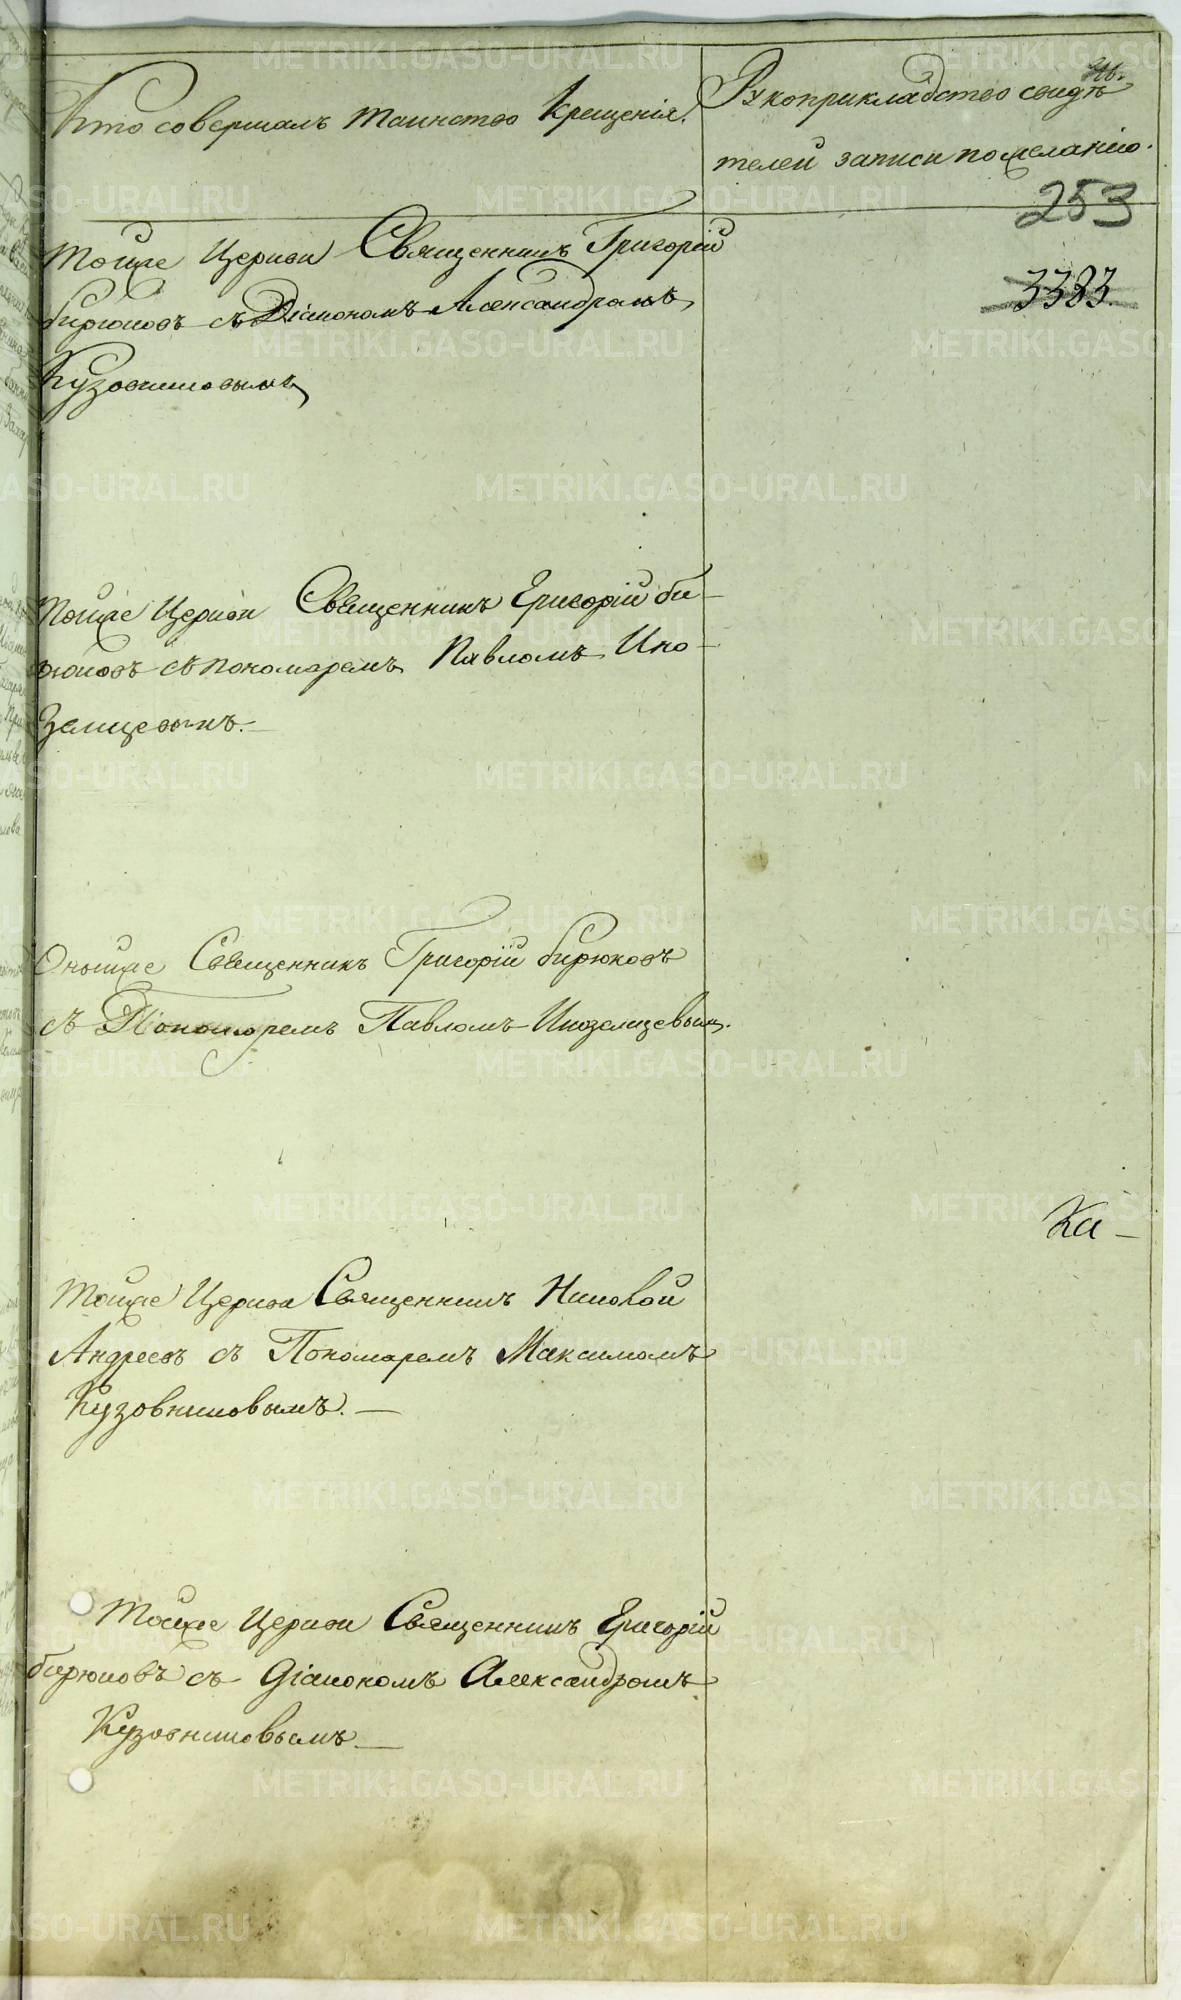 Кто совершалъ таинство Крещенія.
Рукоприкладство свидѣ
телей записи по желанію.
253
3383.
Тойже Церкви Священникъ Григорій
бирюковъ съ Діакономъ Александромъ
Кузовниковымъ
Тойже Церкви Священникъ Григорій би-
рюковъ съ пономаремъ Павломъ Ино-
земцевымъ.
Онойже Священникъ Григорій бирюковъ
съ Пономаремъ Павломъ Иноземцевым.
Ка-
Тойже Церкви Священникъ Николай
Андреевъ съ Пономаремъ Максимомъ
Кузовниковымъ.
Тойже Церкви Священникъ Григорій
бирюковъ съ Діакономъ Александромъ
Кузовниковымъ
METRIKI.GASO-URAL.RU